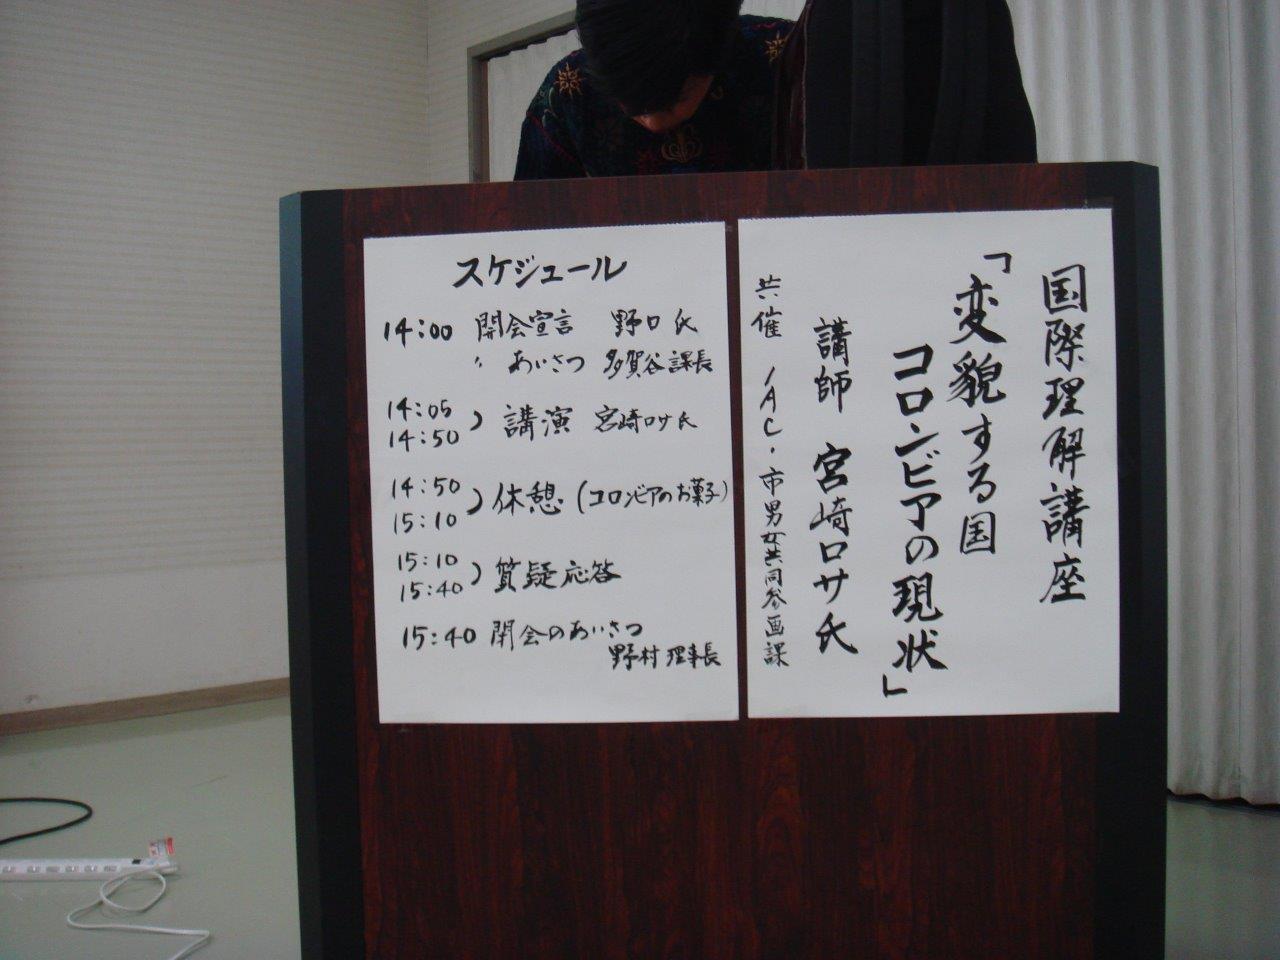 国際理解講座
「変貌する国
コロンビアの現状」
講師 宮崎ロサ氏
共催 IAC・市男女共同参画課
スケジュール
14:00 開会宣言 野口氏
〃 あいさつ 多賀谷課長
14:05
14:50 ) 講演 宮崎ロサ氏
14:50
15:10 ) 休憩 (コロンビアのお菓子)
15:10
15:40 ) 質疑応答
15:40 閉会のあいさつ
野村理事長